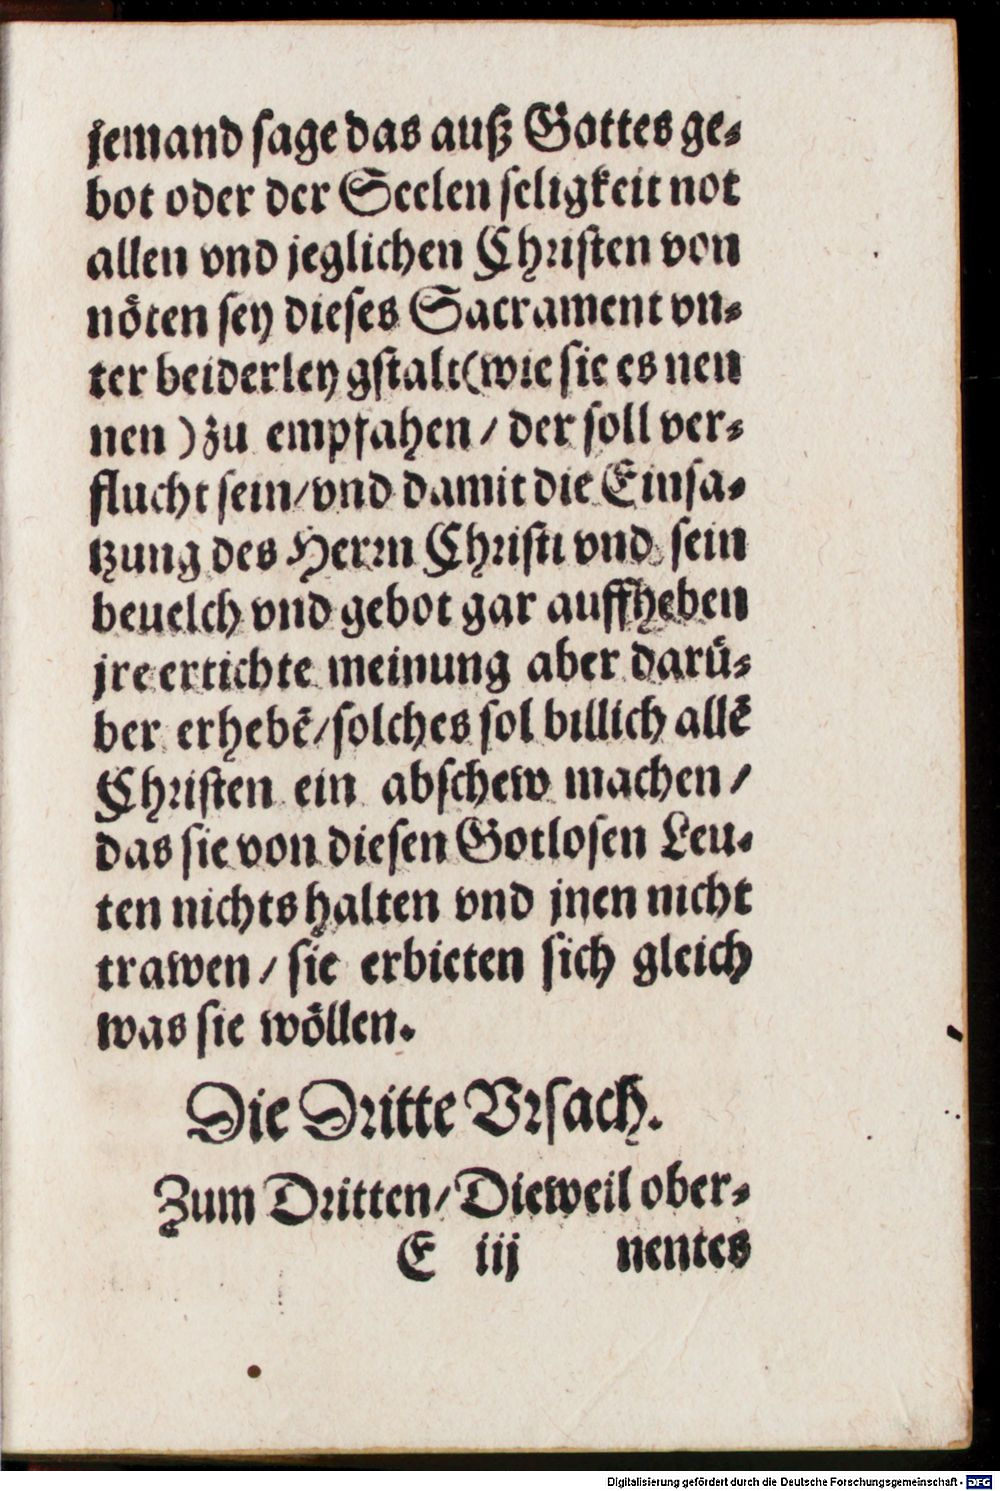 jemand sage das auß Gottes ge⸗
bot oder der Seelen seligkeit not
allen vnd jeglichen Christen von
nöten sey dieses Sacrament vn⸗
ter beiderley gstalt(wie sie es nen
nen )zu empfahen / der soll ver⸗
flucht sein/vnd damit die Einsa⸗
tzung des Herrn Christi vnd sein
beuelch vnd gebot gar auffheben
jre ertichte meinung aber darü⸗
ber erhebē/solches sol billich allē
Christen ein abschew machen /
das sie von diesen Gotlosen Leu⸗
ten nichts halten vnd jnen nicht
trawen / sie erbieten sich gleich
was sie wöllen.
Die Dritte Vrsach.
Zum Dritten/Dieweil ober⸗
E iij nentes
Digitalisierung gefördert durch die Deutsche Forschungsgemeinschaft - DFG